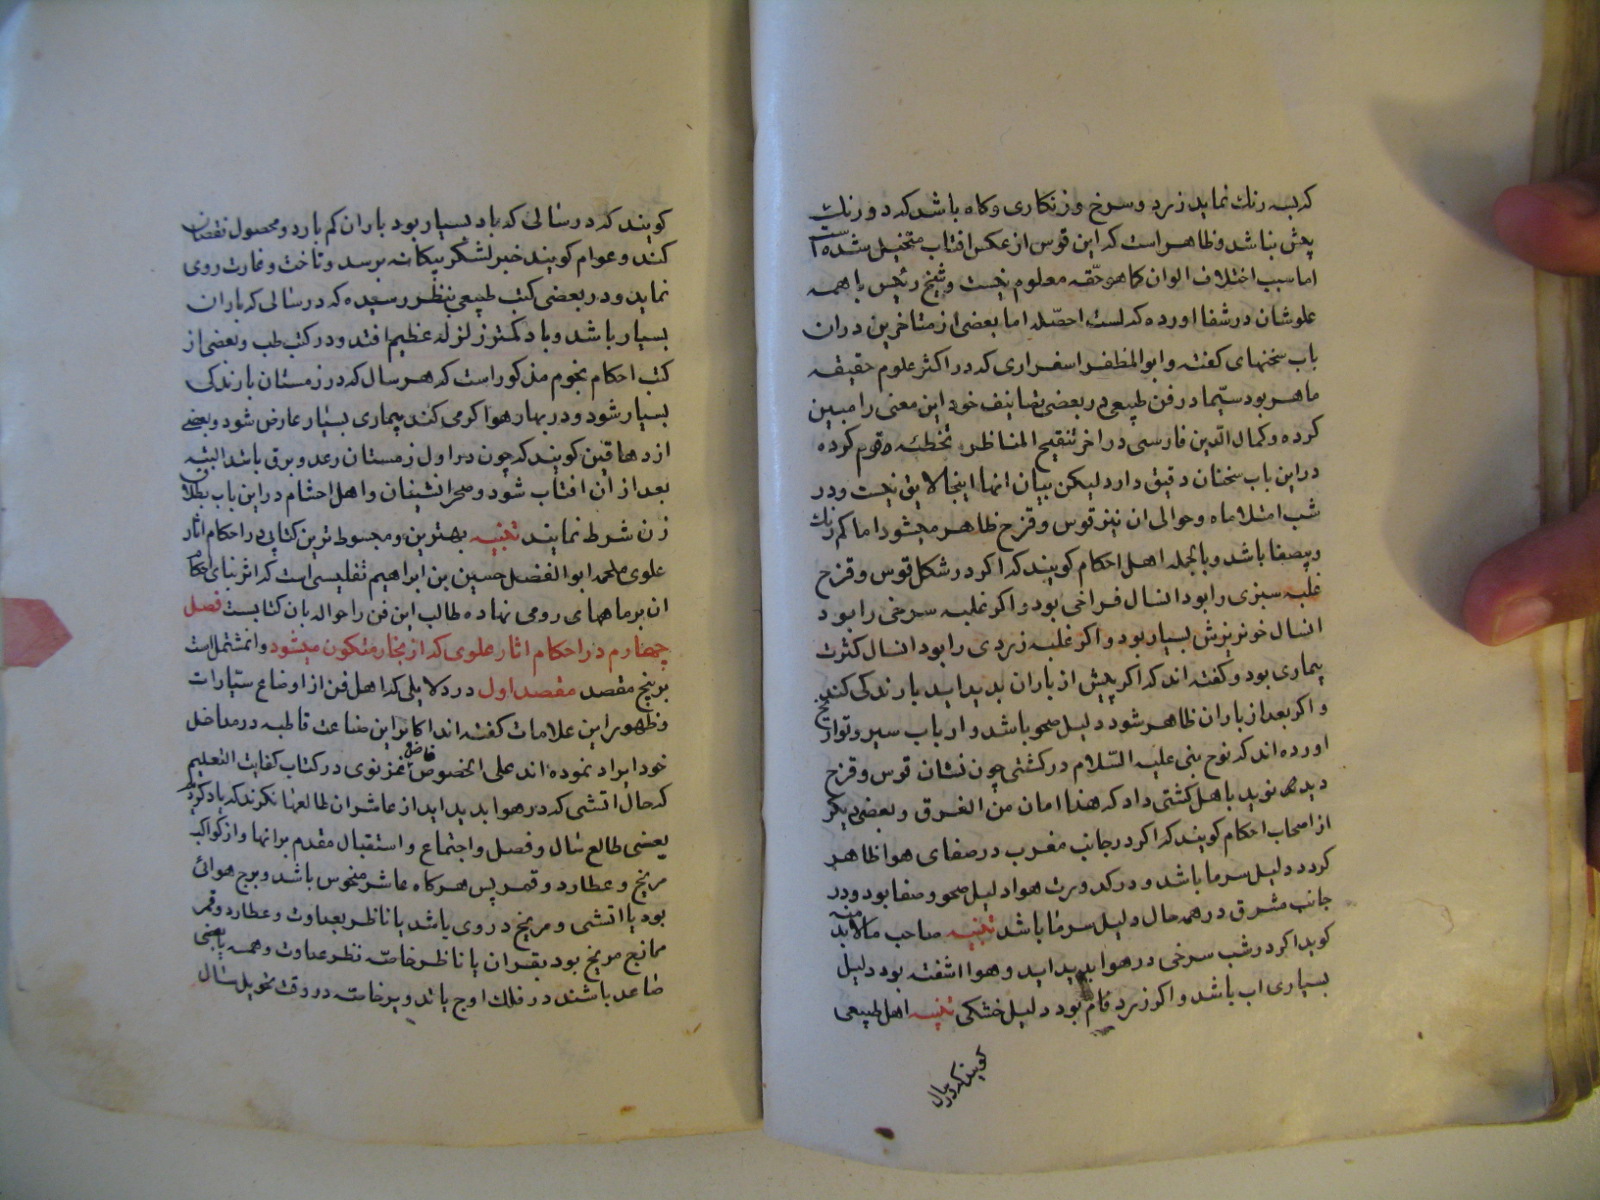 که سه رنك نماید زرد و سرخ و زنکاری و کاه باشد که دو رنك
پیش نباشد و ظاهر است که این قوس از عکس افتاب متخیل شده است
اما سبب اختلاف الوان کما هو حقه معلوم نیست و شیخ رئیس با همه
علوشان در شفا اورده که لست احصله اما بعضی از متاخرین در ان
باب سخنهای کفته و ابوالمظفر اسفراری که در اکثر علوم حقیقه
ماهر بود سیّما در فن طبیعی در بعضی تصانیف خود این معنی را مبین
کرده و کمال الدین فارسی در اخر تنقیح المناظر تخطئه قوم کرده
در این باب سخنان دقیق دارد لیکن بیان انها اینجا لایق نیست و در
شب امتلا ماه و حوالی ان نیز قوس و قزح ظاهر میشود اما کم رنك
و بیصفا باشد و بالجمله اهل احکام کویند که اکر در شکل قوس و قزح
غلبه سبزی را بود انسال فراخی بود و اکر غلبه سرخی را بود
انسال خونریزش بسیار بود و اکر غلبه زردی را بود انسال کثرت
بیماری بود و کفته اند که اکر پیش از باران بدید اید بارندکی کند
و اکر بعد از باران ظاهر شود دلیل صحو باشد و ارباب سیر و تواریخ
اورده اند که نوح نبی علیه السّلام در کشتی چون نشان قوس و قزح
دید نوید باهل کشتی داد که هذا امان من الغرق و بعضی دیکر
از اصحاب احکام کویند که اکر در جانب مغرب در صفای هوا ظاهر
کردد دلیل سرما باشد و در کدورت هوا دلیل صحو و صفا بود و در
جانب مشرق در همه حال دلیل سرما باشد تنبیه صاحب مالابد منه
کوید اکر در شب سرخی در هوا بدید اید و هوا اشفته بود دلیل
بسیاری اب باشد و اکر زرد فام بود دلیل خشکی تنبیه اهل طبیعی
کویند که در سال
کویند که در سالی که باد بسیار بود باران کم بارد و محصول نقصان
کند و عوام کویند خبر لشکر بیکانه برسد و تاخت و غارت روی
نماید و در بعضی کتب طبیعی بنظر رسیده که در سالی که باران
بسیار باشد و باد کمتر زلزله عظیم افتد و در کتب طب و بعضی از
کتب احکام نجوم مذکور است که هر سال که در زمستان بارندکی
بسیار شود و در بهار هوا کرمی کند بیماری بسیار عارض شود و بعضی
از دهاقین کویند که چون در اول زمستان رعد و برق باشد البته
بعد از ان افتاب شود و صحرانشینان و اهل احشام در این باب بطلاق
زن شرط نمایند تنبیه بهترین و مبسوط ترین کتابی در احکام اثار
علوی ملحمه ابوالفضل حسین بن ابراهیم تفلیسی است که اثر بنای احکام
ان بر ماههای رومی نهاده طالب این فن را حواله بان کتابست فصل
چهارم در احکام اثار علوی که از بخار متکون میشود و ان مشتمل است
بر پنج مقصد مقصد اول در دلایلی که اهل فن از اوضاع ستیارات
و ظهور این علامات کفته اند اکابر این صناعت قاطبه در مداخل
خود ایراد نموده اند علی الخصوص فاضل غزنوی در کتاب کفایت التعلیم
که حال اتشی که در هوا بدید اید از عاشر ان طالعها نکرند که یاد کردیم
یعنی طالع سال و فصل و اجتماع و استقبال مقدم بر انها و از کواکب
مریخ و عطارد و قمر پس هرکاه عاشر منحوس باشد و برج هوائی
بود یا اتشی و مریخ در وی باشد یا ناظر بعداوت و عطارد و قمر
ممازج مریخ بود بقران یا ناظر خاصّه نظر عداوت و همه یا بعضی
صاعد باشند در فلك اوج یا تدویر خاصه در وقت تحویل سال